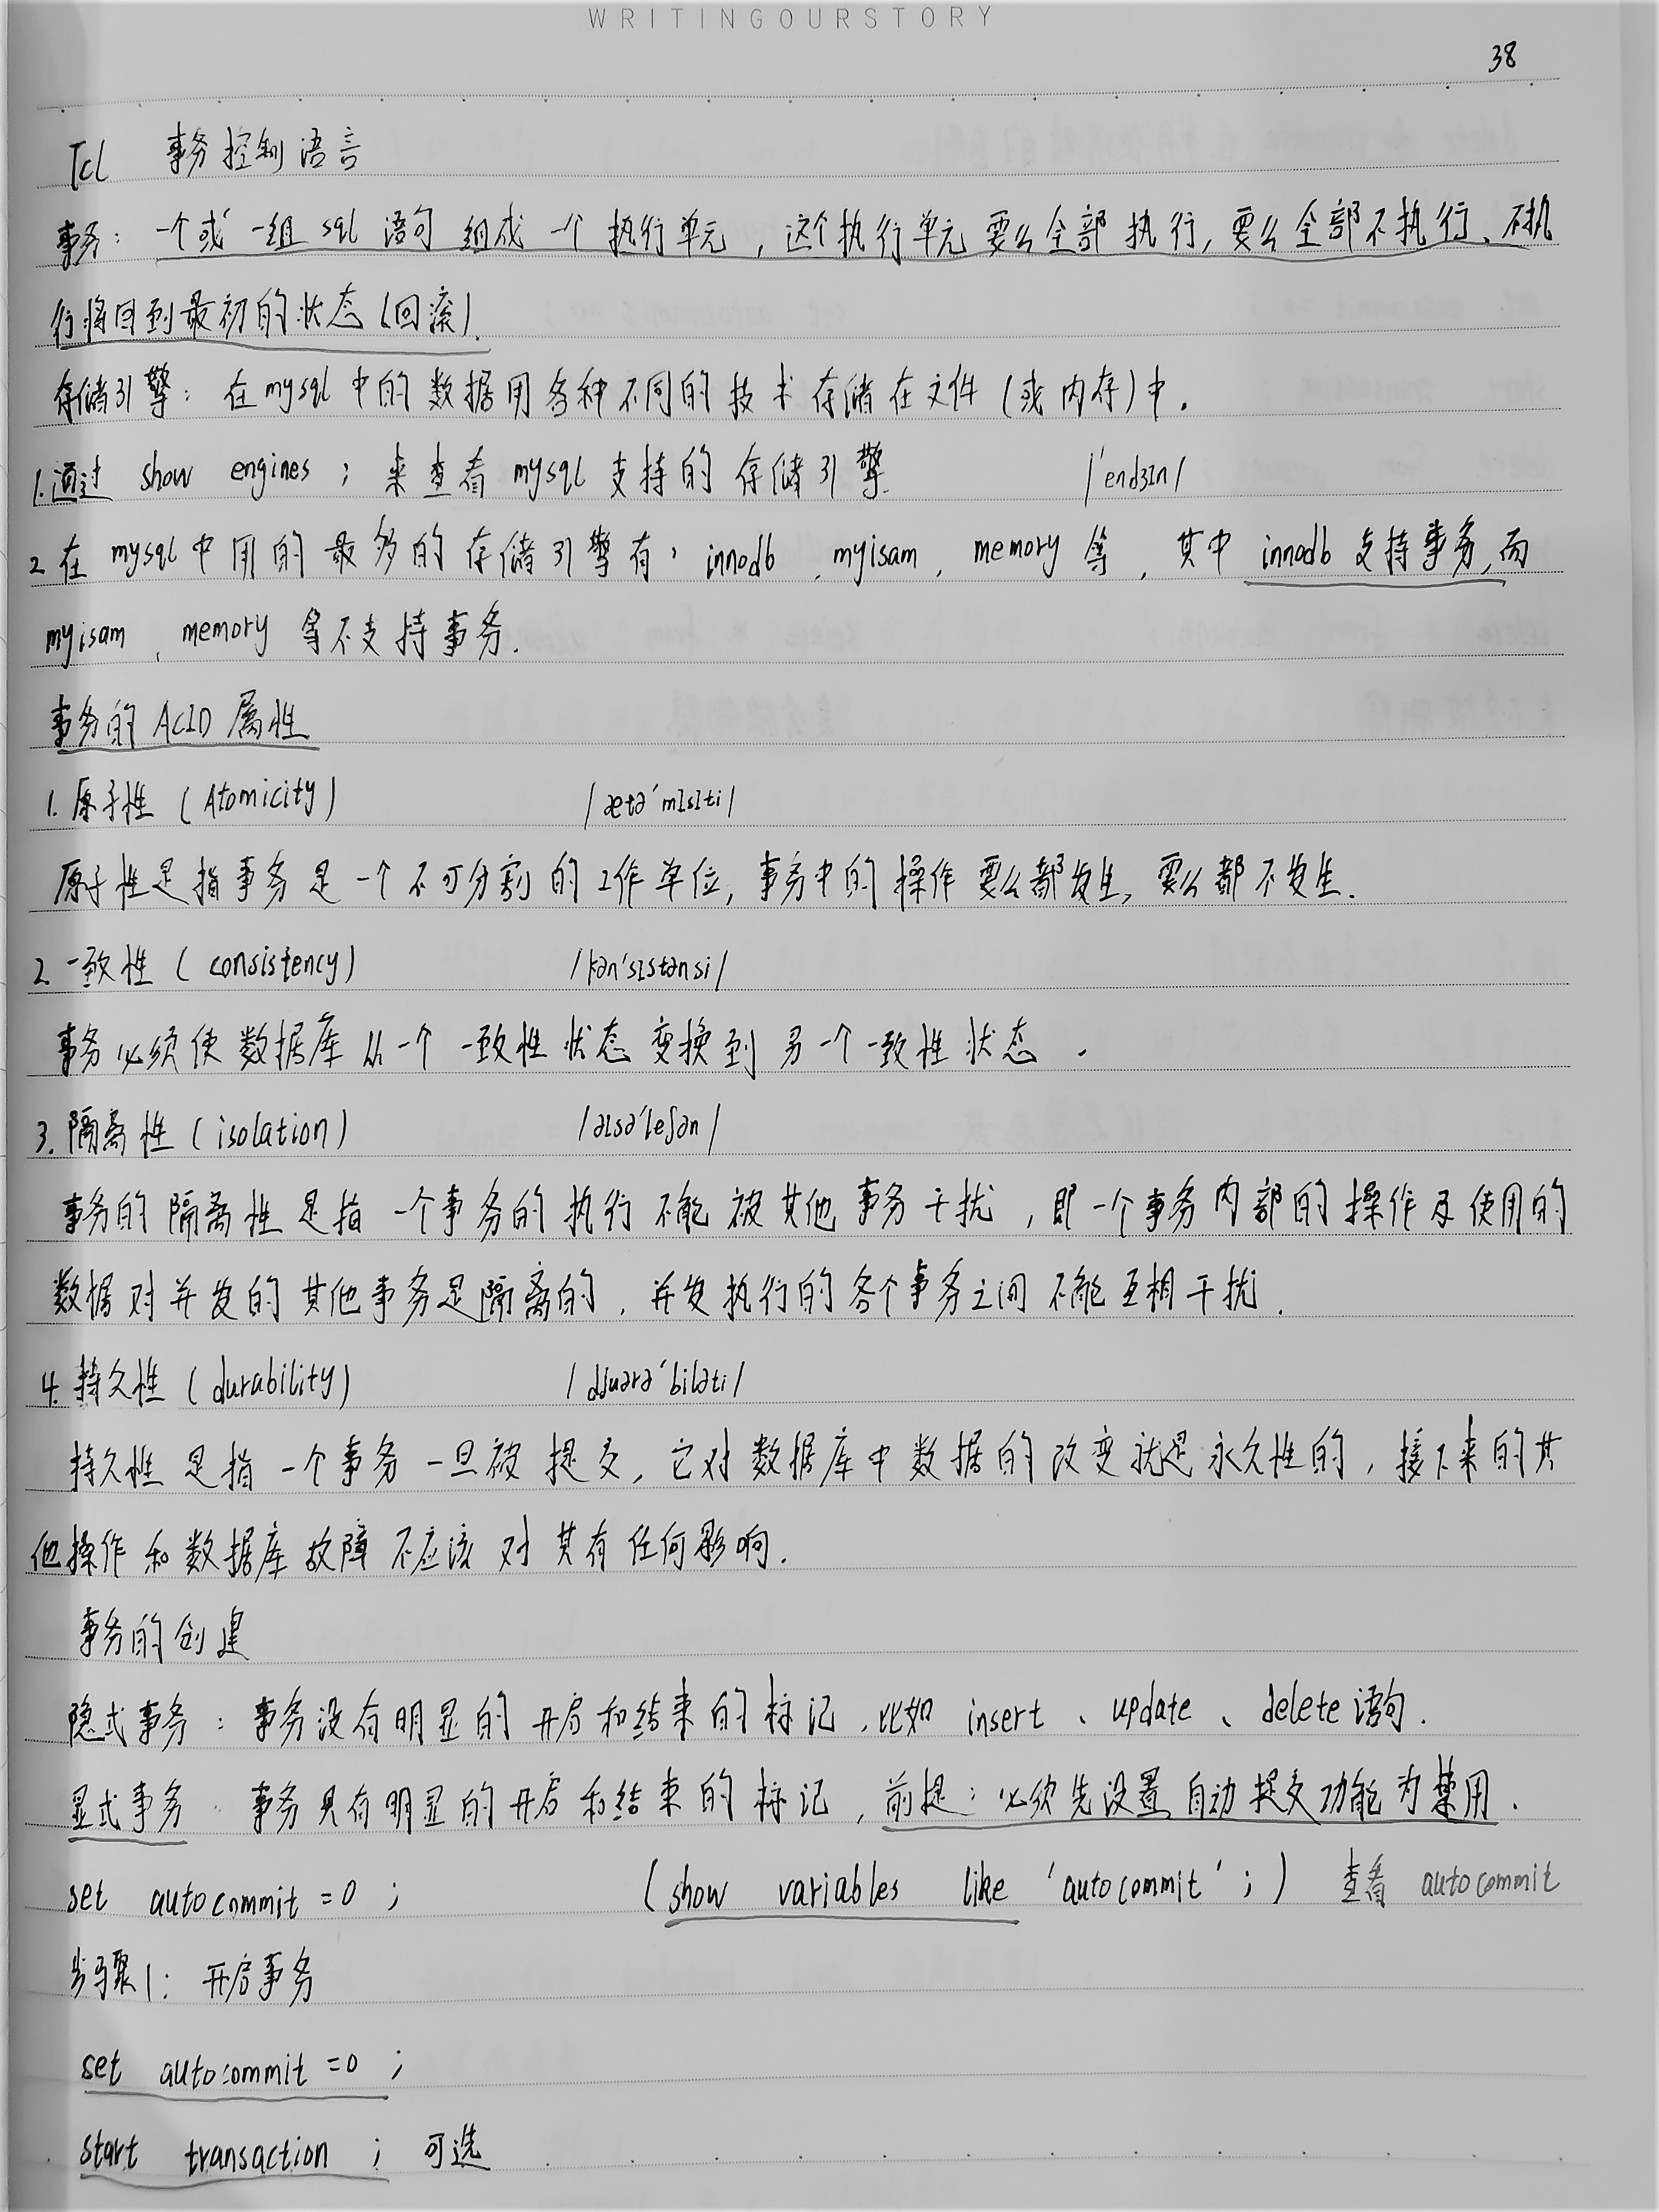 WRITINGOURSTORY
38
Tcl 事务控制语言
事务：一个或一组sql语句组成一个执行单元，这个执行单元要么全部执行，要么全部不执行、不执
行将回到最初的状态(回滚).
存储引擎：在mysql中的数据用各种不同的技术存储在文件(或内存)中.
1.通过 show engines ; 来查看mysql支持的存储引擎. /'endʒɪn/
2.在mysql中用的最多的存储引擎有：innodb , myisam , memory 等，其中 innodb 支持事务,而
myisam , memory 等不支持事务.
事务的ACID属性
1.原子性 (Atomicity) /ætə'mɪsɪti/
原子性是指事务是一个不可分割的工作单位,事务中的操作要么都发生,要么都不发生.
2.一致性 (consistency) /kən'sɪstənsi/
事务必须使数据库从一个一致性状态变换到另一个一致性状态.
3.隔离性 (isolation) /aɪsə'leʃən/
事务的隔离性是指一个事务的执行不能被其他事务干扰，即一个事务内部的操作及使用的
数据对并发的其他事务是隔离的，并发执行的各个事务之间不能互相干扰.
4.持久性 (durability)
持久性是指一个事务一旦被提交，它对数据库中数据的改变就是永久性的，接下来的其
他操作和数据库故障不应该对其有任何影响.
事务的创建
隐式事务：事务没有明显的开启和结束的标记，比如 insert 、update 、delete语句.
显式事务：事务具有明显的开启和结束的标记，前提：必须先设置自动提交功能为禁用.
set autocommit =0 ; (show variables like 'autocommit' ; ) 查看 autocommit
步骤1: 开启事务
set autocommit =0 ;
start transaction ; 可选